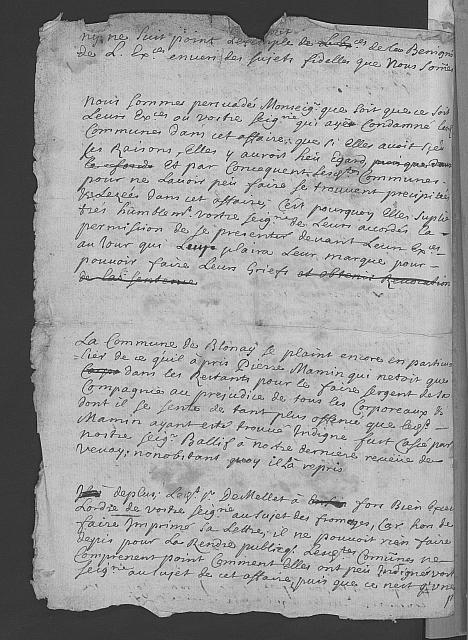 ny ne suit point Lexemple de la Benigni
de L. Ex.ces envers des sujets fidelles que Nous Somes
Nous sommes persuadés Monseig.r que soit que ce soit
Leurs Ex.ces ou vostre seig.rie qui aye Condamné Les
Communes dans cet affaire, que si Elles avoit
ses Raisons, Elles y auroit heu Egard
Et par Concequent Lesd.tes Communes
pour ne Lavoir peu faire se trouvent precipitée
& Lezées dans cet affaire, C'est pourquoy Elles suplie
trés humblem.t vostre seig.rie de Leurs accorder La
permission de se presenter devant Leurs Ex.ces
au Jour qui Leur plaira Leur marqué pour
pouvoir faire Leurs Griefs et obtenir Revocation
de Lad. sentence
La Commune de Blonay se plaint encore en particu
lier de ce quil a pris Pierre Mamin qui netoit que
dans les Reitants pour le faire sergent de sa
Compagnie au prejudice de tous les Corporeaux &
dont il se sente de tant plus offencé que led.t
Mamin ayant esté trouvé Indigne fust Cassé par
nostre seig.r Ballif à nostre derniere reveue de
Vevay; nonobstant quoy il La repris
deplus, Led.t S.r DeMellet à fort Bien
Lordre de vostre seig.rie au sujet des fromages, Car hors de
faire Imprimé sa Lettre, il ne pouvoit rien faire
depis pour La Rendre publiq; Lesd.tes Comunes ne
Comprenent point Comment Elles ont peu Indigner vost
seig.rie au sujet de cet affaire, puis que ce nest q'une